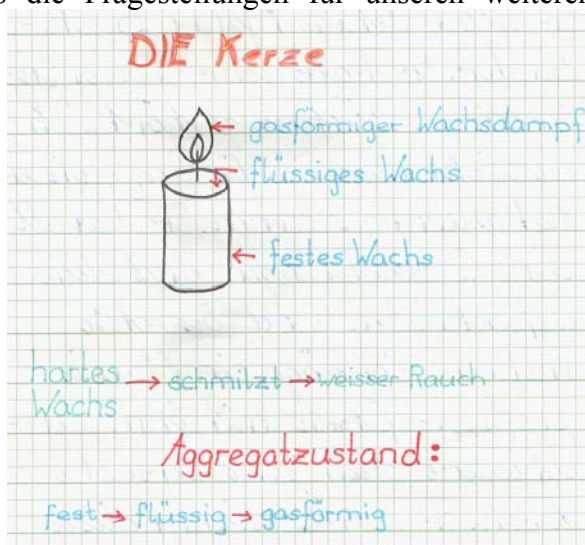 die Fragestellungen für unseren weiteren
DIE Kerze
← gasförmiger Wachsdampf
flüssiges Wachs
← festes Wachs
hartes Wachs → schmilzt → weisser Rauch
Aggregatzustand:
fest → flüssig → gasförmig